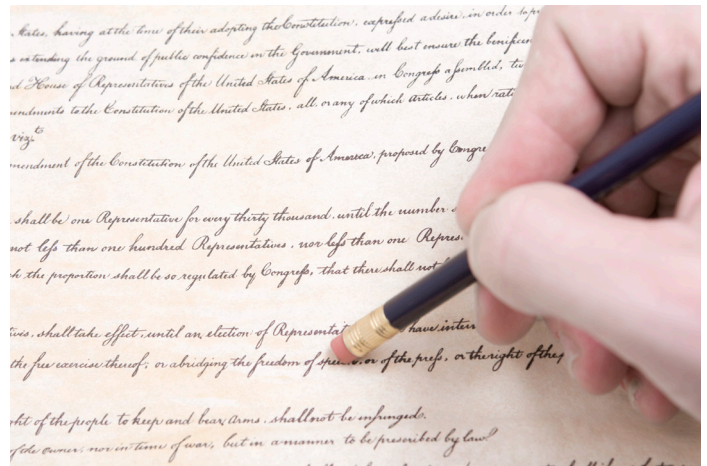 States, having at the time of their adopting the Constitution, expressed a desire, in order to
extending the ground of public confidence in the Government, will best ensure the
House of Representatives of the United States of America, in Congreſs aſsembled,
to the Constitution of the United States. all, or any of which articles, when
vizt
of the Constitution of the United States of America, proposed by
shall be one Representative for every thirty thousand, until the number
not leſs than one hundred Representatives, nor leſs than one
the proportion shall be so regulated by Congreſs, that there shall not
shall take effect, until an election of have
the free exercise thereof; or abridging the freedom of or of the preſs, or the right of the
of the people to keep and bear arms, shall not be infringed.
of the owner, nor in time of war, but in a manner to be prescribed by law